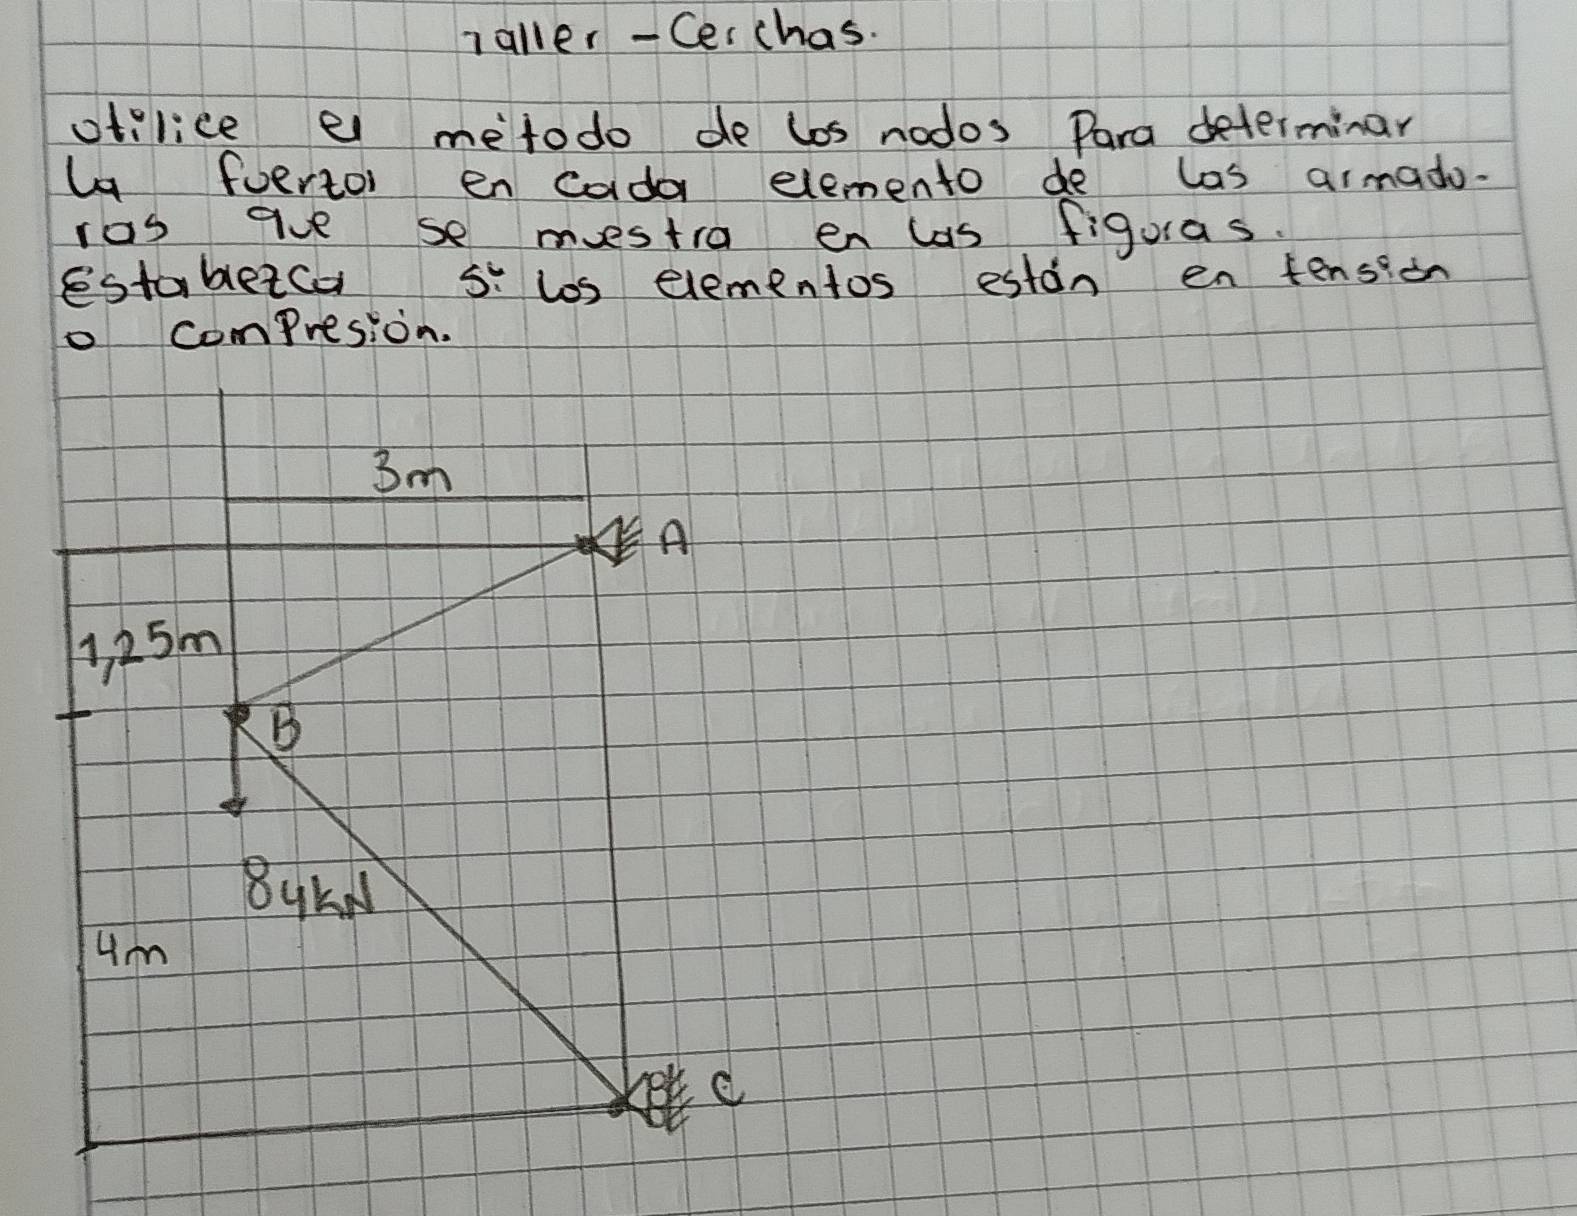 Taller - Cerchas.
Utilice el método de los nodos Para determinar
la fuerza en cada elemento de las armadu-
ras que se muestra en las figuras.
Establezca si los elementos están en tensión
o comPresión.
3m
A
1,25m
B
84kN
4m
C